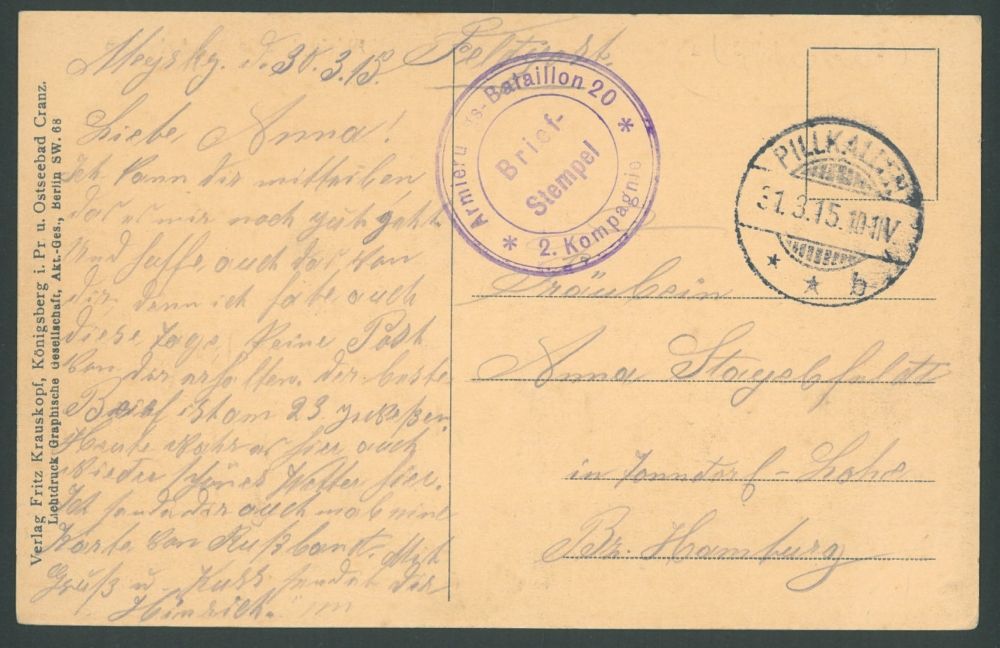 Verlag Fritz Krauskopf, Königsberg i. Pr. u. Ostseebad Cranz.
Lichtdruck Graphische Gesellschaft, Akt.-Ges., Berlin SW. 68
d. 30.3.15.
Liebe Anna!
Ich kann dir mitteilen
das es mir noch gut geht
und hoffe auch das von
dir denn ich habe auch
diese Tage keine Post
von dir erhalten. der
Brief ist am 23.
Heute es hier auch
wieder schönes Wetter hier.
Ich sende dir auch mal eine
Karte von Rußland. Mit
Gruß u. Kuss sendet dir
Hinrich.
Feldpost.
Armieru s-Bataillon 20
* 2. Kompagnie *
Brief-
Stempel
PILLKALLEN
31.3.15. 10-11V.
* * b
Fräulein
Anna
in Lohe
Bz. Hamburg